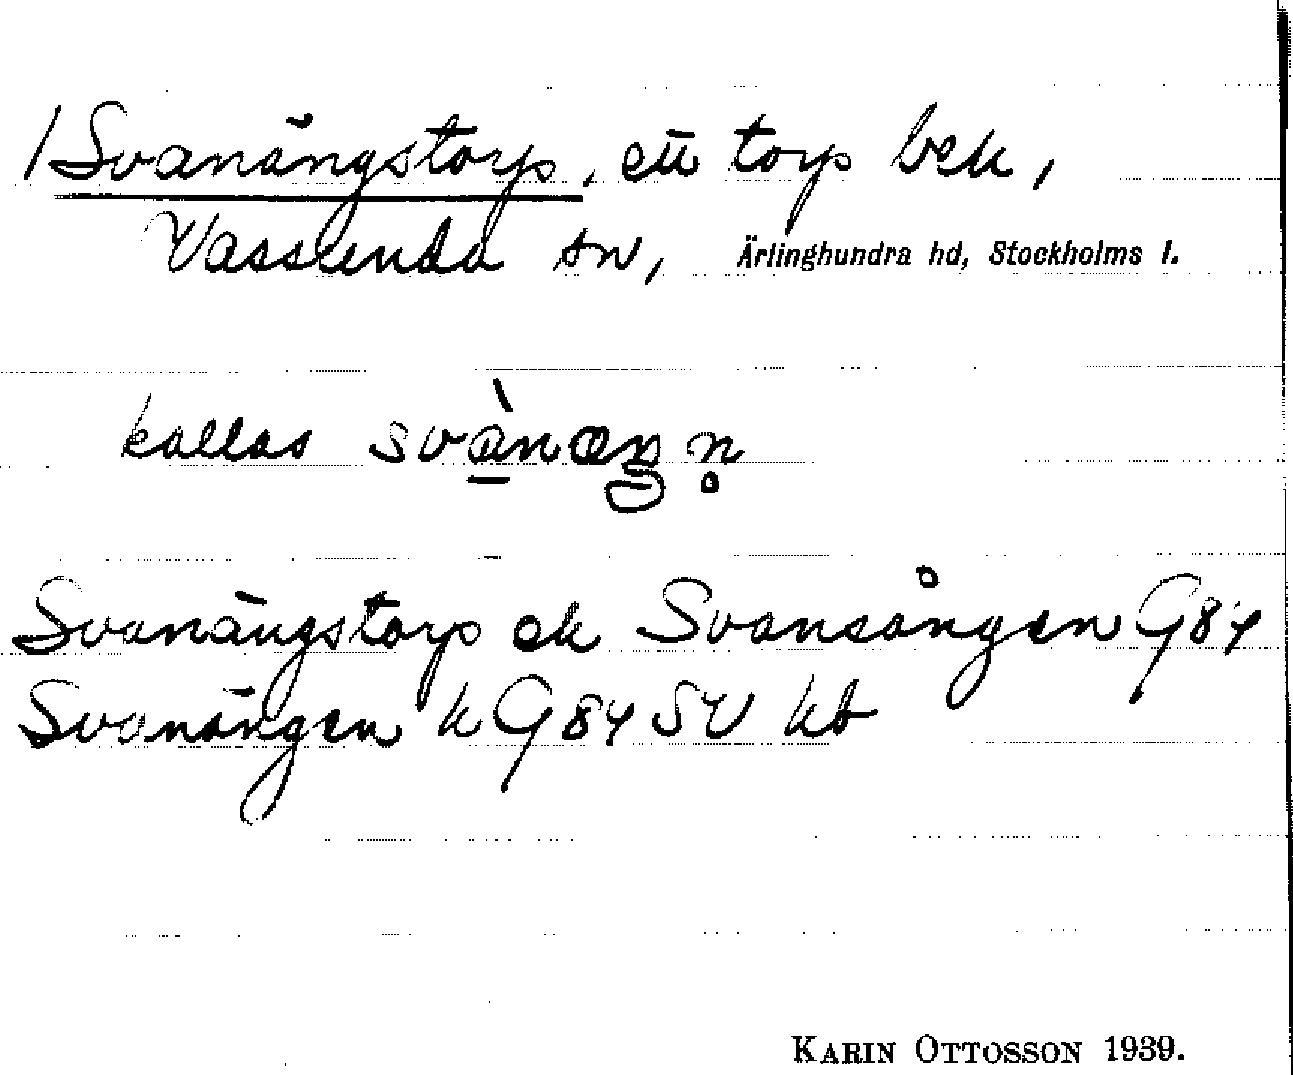 / Svanängstorp, ett torp bek,
Vasslunda sn, Ärlinghundra hd, Stockholms l.
kallas
Svanängstorp ek Svansången G84
Svanängen k G84 SV kb
KARIN OTTOSSON 1939.